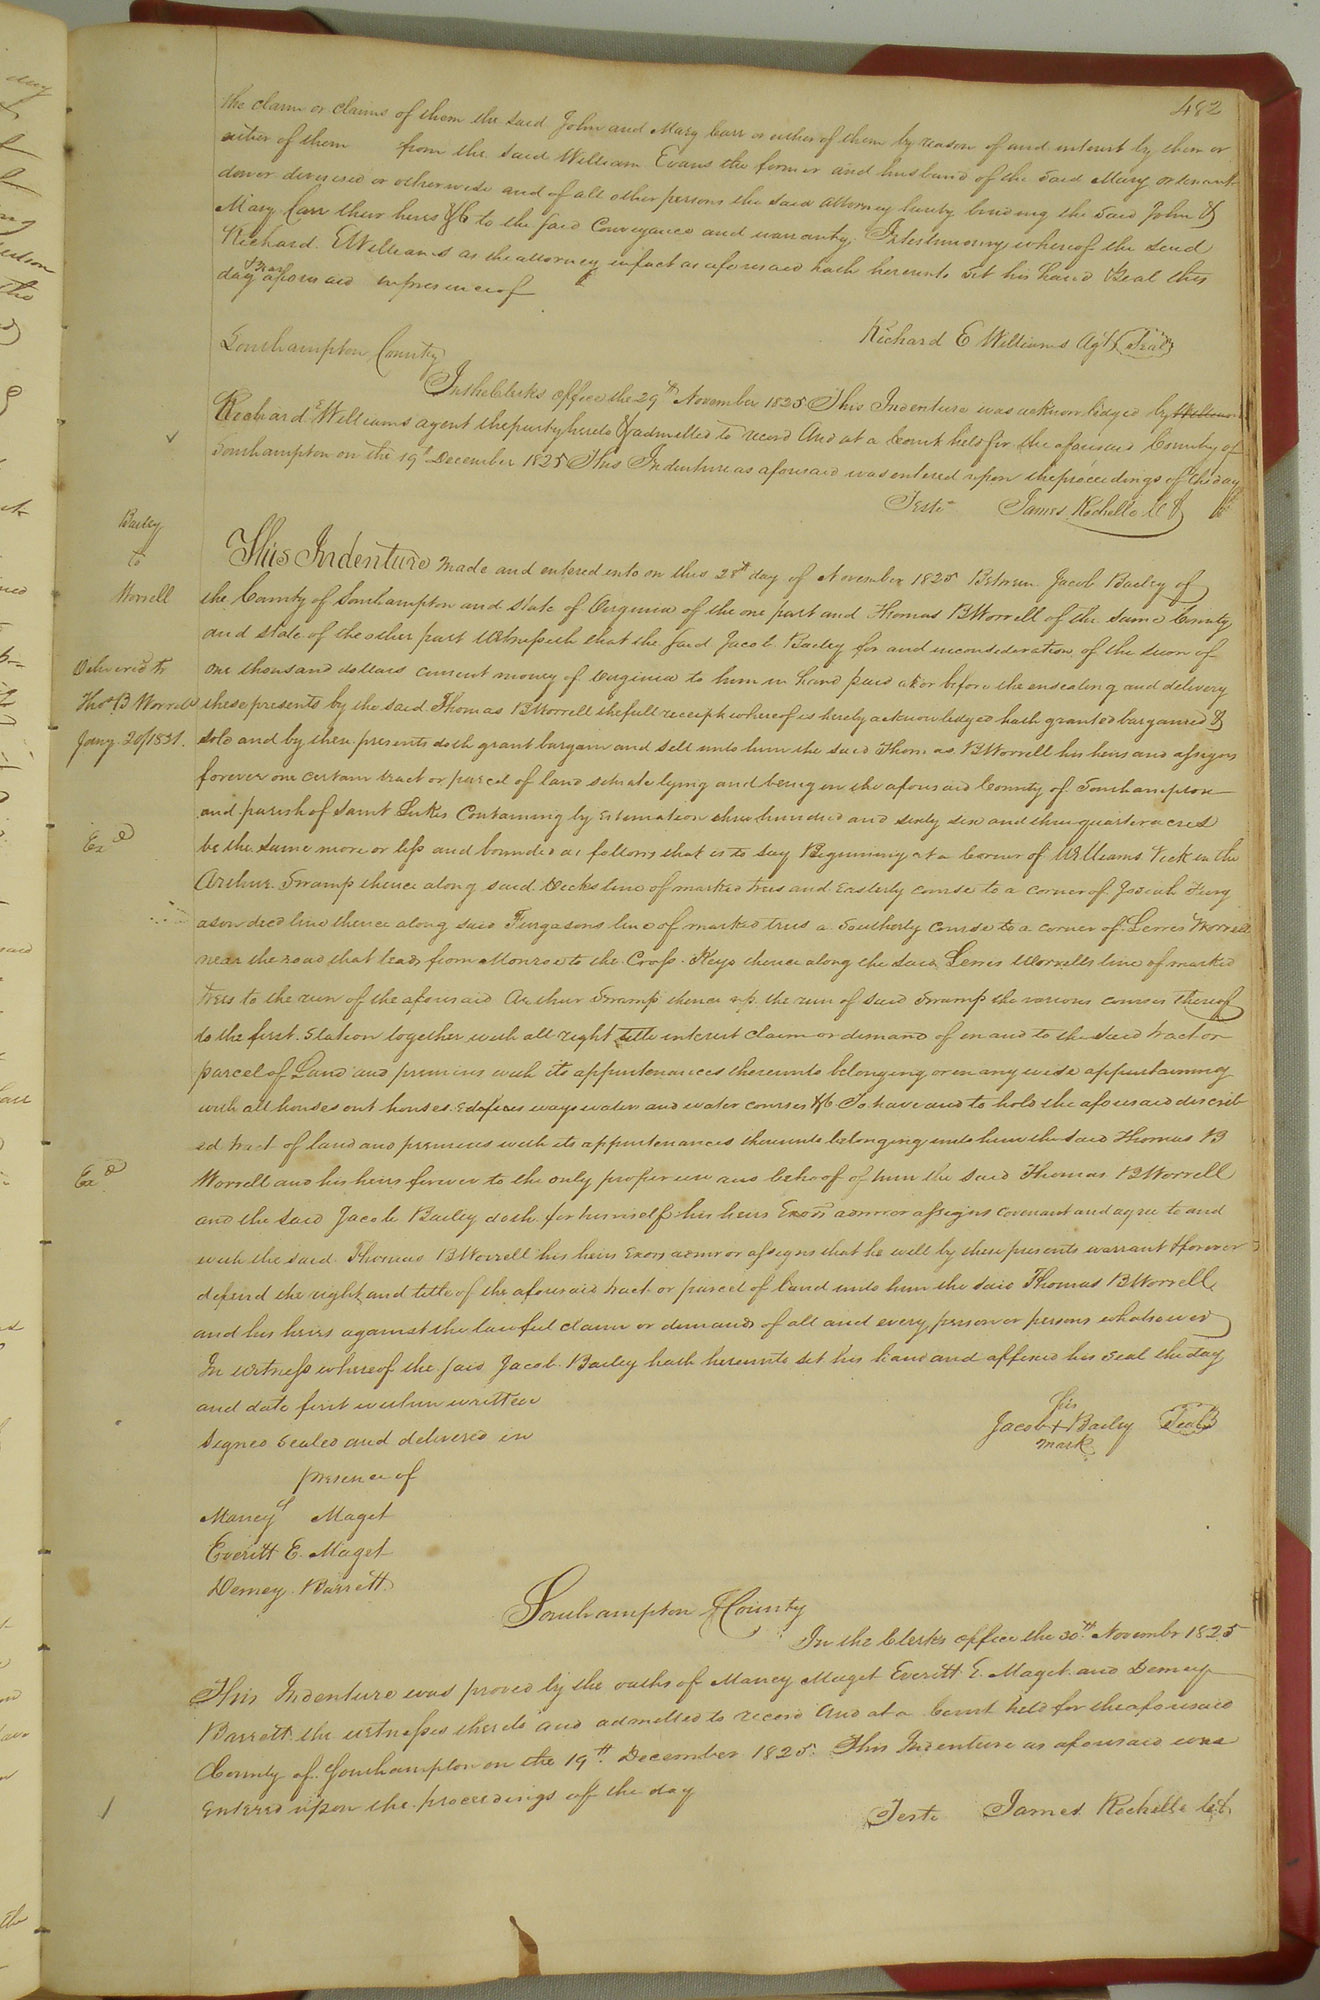 482
the claim or claims of them the said John and Mary Carr or either of them by reason of and interest by them or
either of them from the said William Evans the former and husband of the said Mary or tenant
dower divorced or otherwise and of all other persons the said attorney hereby binding the said John &
Mary Carr their heirs &c to the said Conveyance and warranty. In testimony whereof the said
Richard E Williams as the attorney in fact as aforesaid hath hereunto set his hand & seal this
day & year aforesaid in presence of
Richard E Williams Agt (Seal)
Southampton County
In the Clerks office the 29th November 1825 This Indenture was acknowledged by
Richard E Williams agent the party hereto & admitted to record And at a Court held for the aforesaid County of
Southampton on the 19th December 1825 This Indenture as aforesaid was entered upon the proceedings of the day
Teste James Rochelle
Bailey
to
Worrell
This Indenture made and entered into on this 28th day of November 1825 Between Jacob Bailey of
the County of Southampton and state of Virginia of the one part and Thomas B Worrell of the same County
and state of the other part Witnesseth that the said Jacob Bailey for and inconsideration of the sum of
Delivered to
one thousand dollars current money of Virginia to him in hand paid at or before the ensealing and delivery
Thos B Worrell
these presents by the said Thomas B Worrell the full receipt whereof is hereby acknowledged hath granted bargained &
Jany. 20/1831.
sold and by these presents doth grant bargain and sell unto him the said Thomas B Worrell his heirs and assigns
forever one certain tract or parcel of land situate lying and being in the aforesaid County of Southampton
and parish of Saint Lukes Containing by estimation three hundred and sixty six and three quarter acres
Exd
be the same more or less and bounded as follows that is to say Beginning at a corner of Williams Vick in the
Arthur Swamp thence along said Vicks line of marked trees and Easterly course to a corner of Josiah Furg
ason decd line thence along said Furgasons line of marked trees a Southerly Course to a corner of Lewis Worrell
near the road that leads from Monroe to the Cross Keys thence along the said Lewis Worrells line of marked
trees to the run of the aforesaid Arthur Swamp thence up the run of said Swamp the various courses thereof
to the first station together with all right title interest claim or demand of in and to the said tract or
parcel of Land and premises with its appurtenances thereunto belonging or in any wise appurtaining
with all houses out houses Edifices ways waters and water courses &c To have and to hold the aforesaid describ
ed tract of land and premises with its appurtenances thereunto belonging unto him the said Thomas B
Exd
Worrell and his heirs forever to the only proper use and behoof of him the said Thomas B Worrell
and the said Jacob Bailey doth for himself his heirs Exors admor or assigns covenant and agree to and
with the said Thomas B Worrell his heirs Exors admr or assigns that he will by these presents warrant & forever
defend the right and title of the aforesaid tract or parcel of land unto him the said Thomas B Worrell
and his heirs against the lawful claim or demands of all and every person or persons whatsoever
In witness whereof the said Jacob Bailey hath hereunto set his hand and affixed his seal the day
and date first within written
his
Jacob + Bailey (Seal)
mark
Signed Sealed and delivered in
presence of
Mancy Maget
Everitt E. Maget
Demcy Barrett
Southampton County
In the Clerks office the 30th November 1825
This Indenture was proved by the oaths of Mancy Maget Everitt E. Maget and Demcy
Barrett the witnesses thereto and admitted to record And at a Court held for the aforesaid
County of Southampton on the 19th December 1825. This Indenture as aforesaid was
entered upon the proceedings of the day
Teste James Rochelle Clk